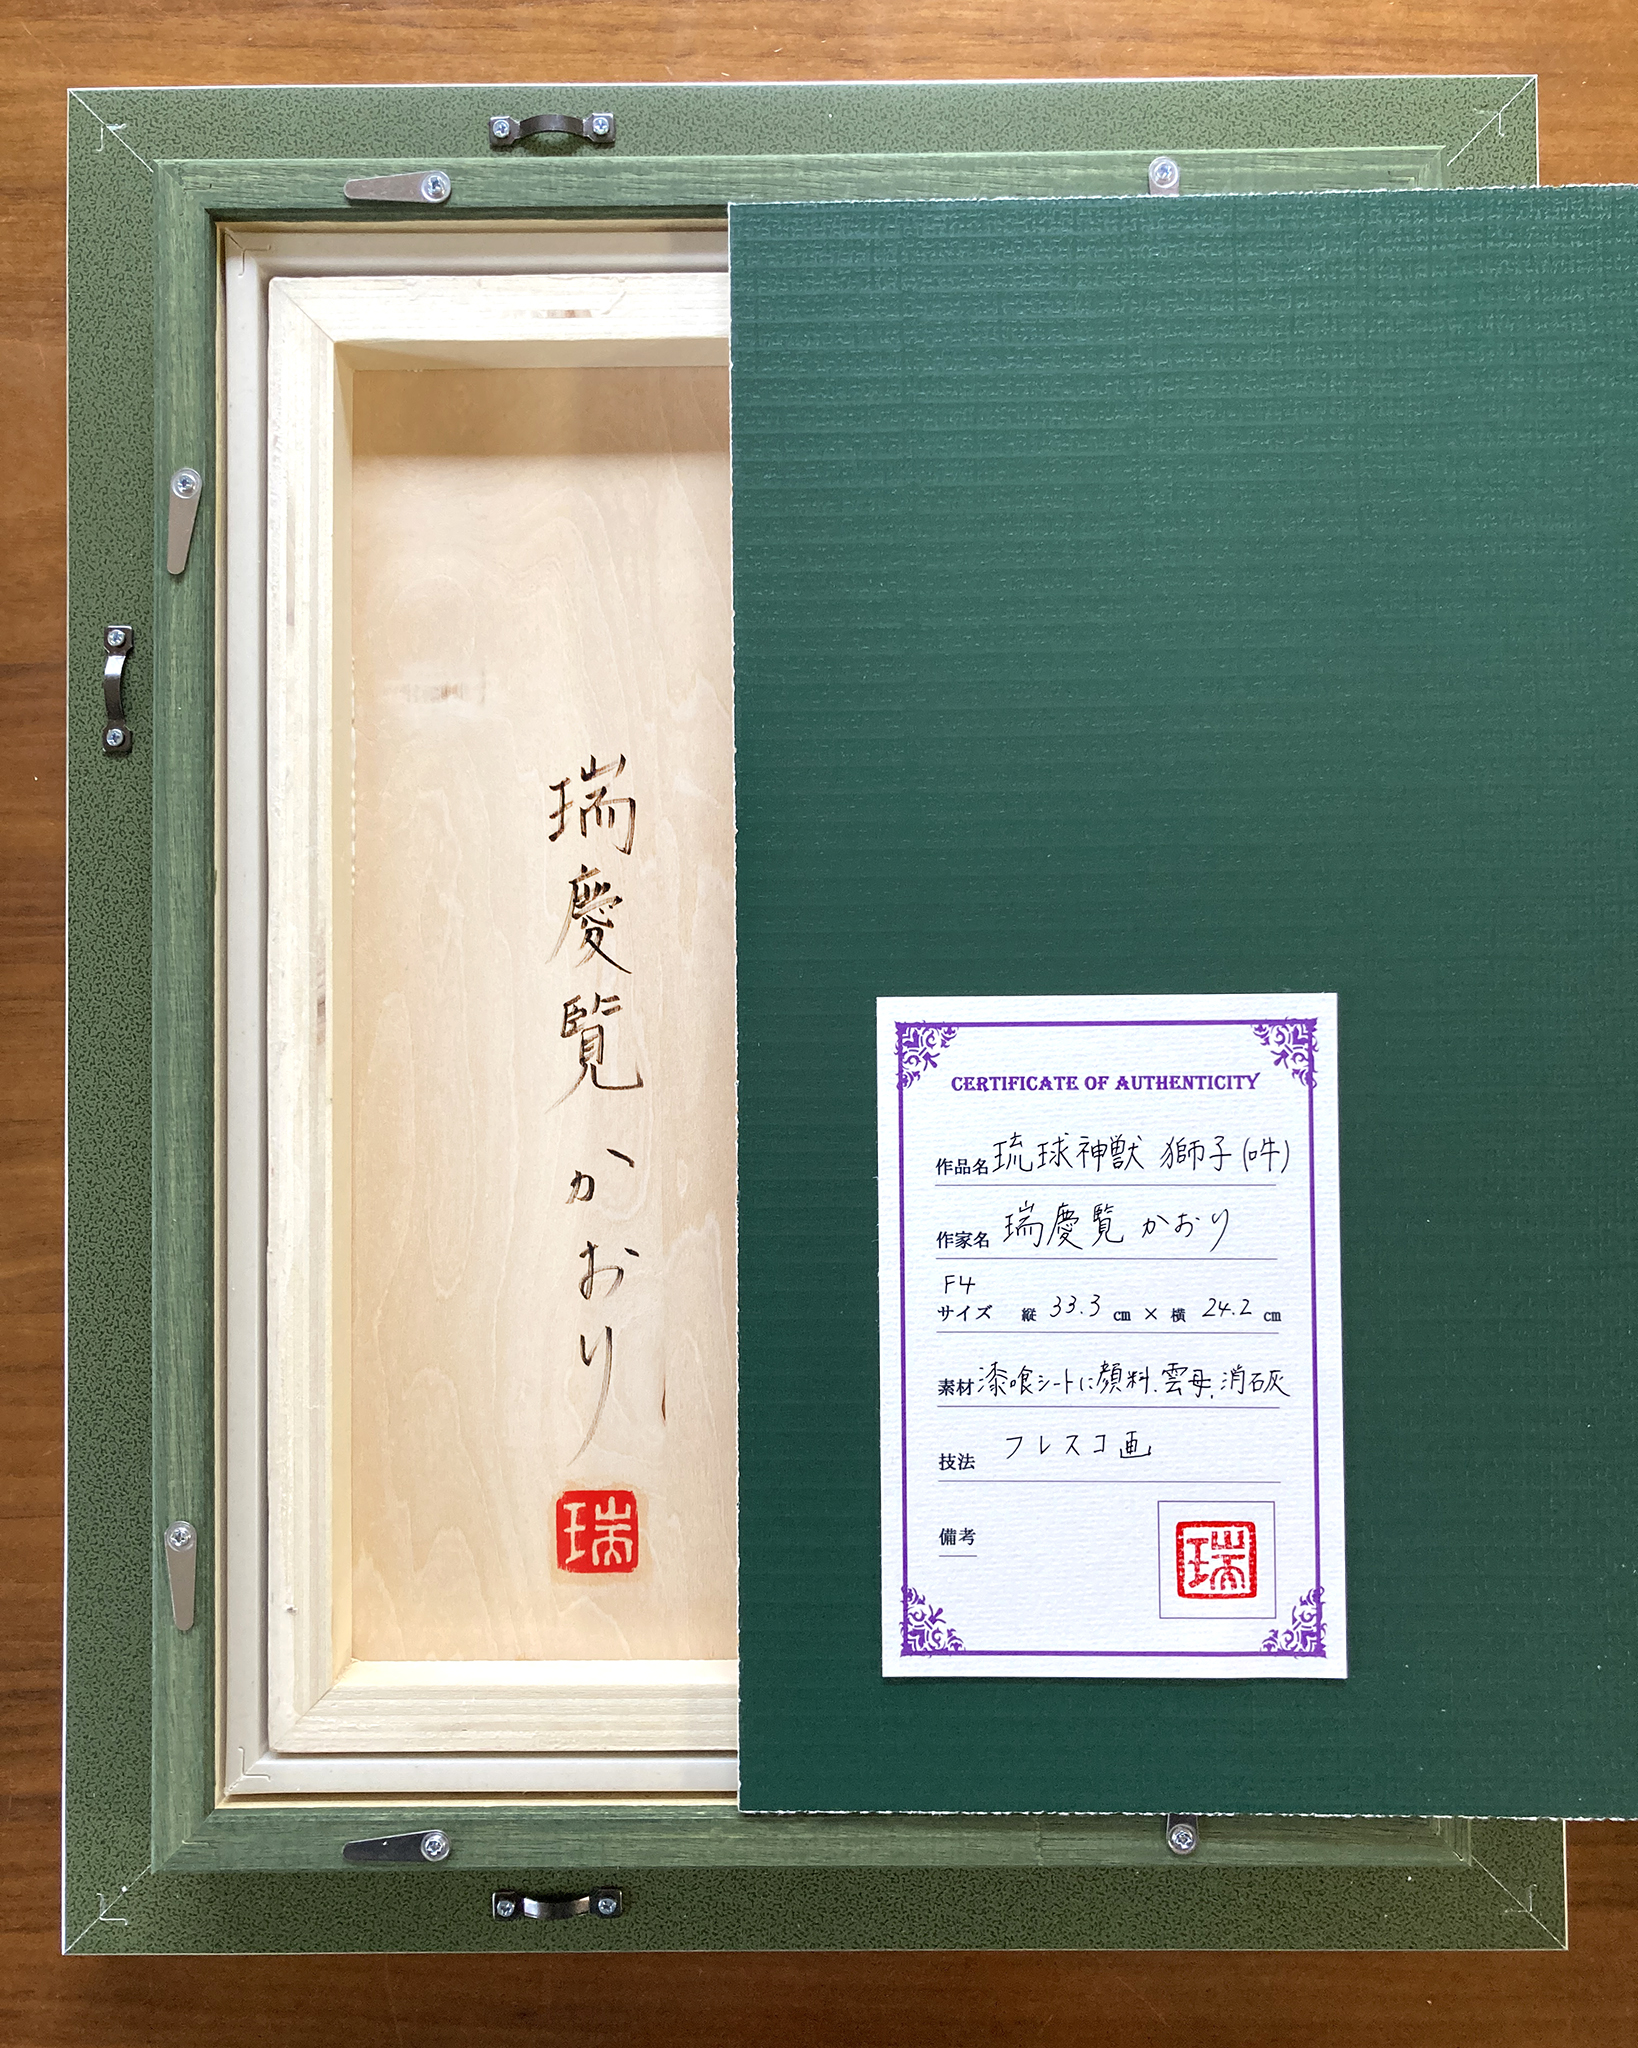 瑞慶覧かおり
瑞
CERTIFICATE OF AUTHENTICITY
作品名 琉球神獣 獅子(吽)
作家名 瑞慶覧 かおり
F4
サイズ 縦 33.3 cm × 横 24.2 cm
素材 漆喰シートに顔料、雲母、消石灰
技法 フレスコ画
備考
瑞